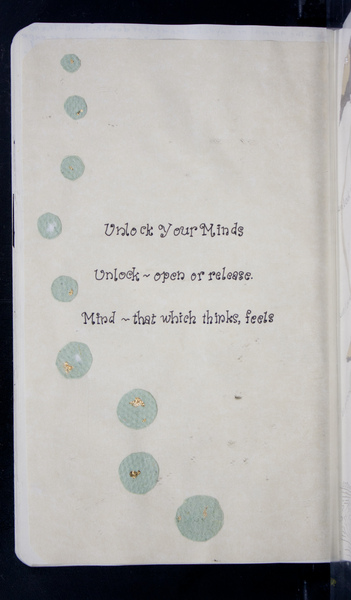 Unlock Your Minds
Unlock ~ open or release.
Mind ~ that which thinks, feels